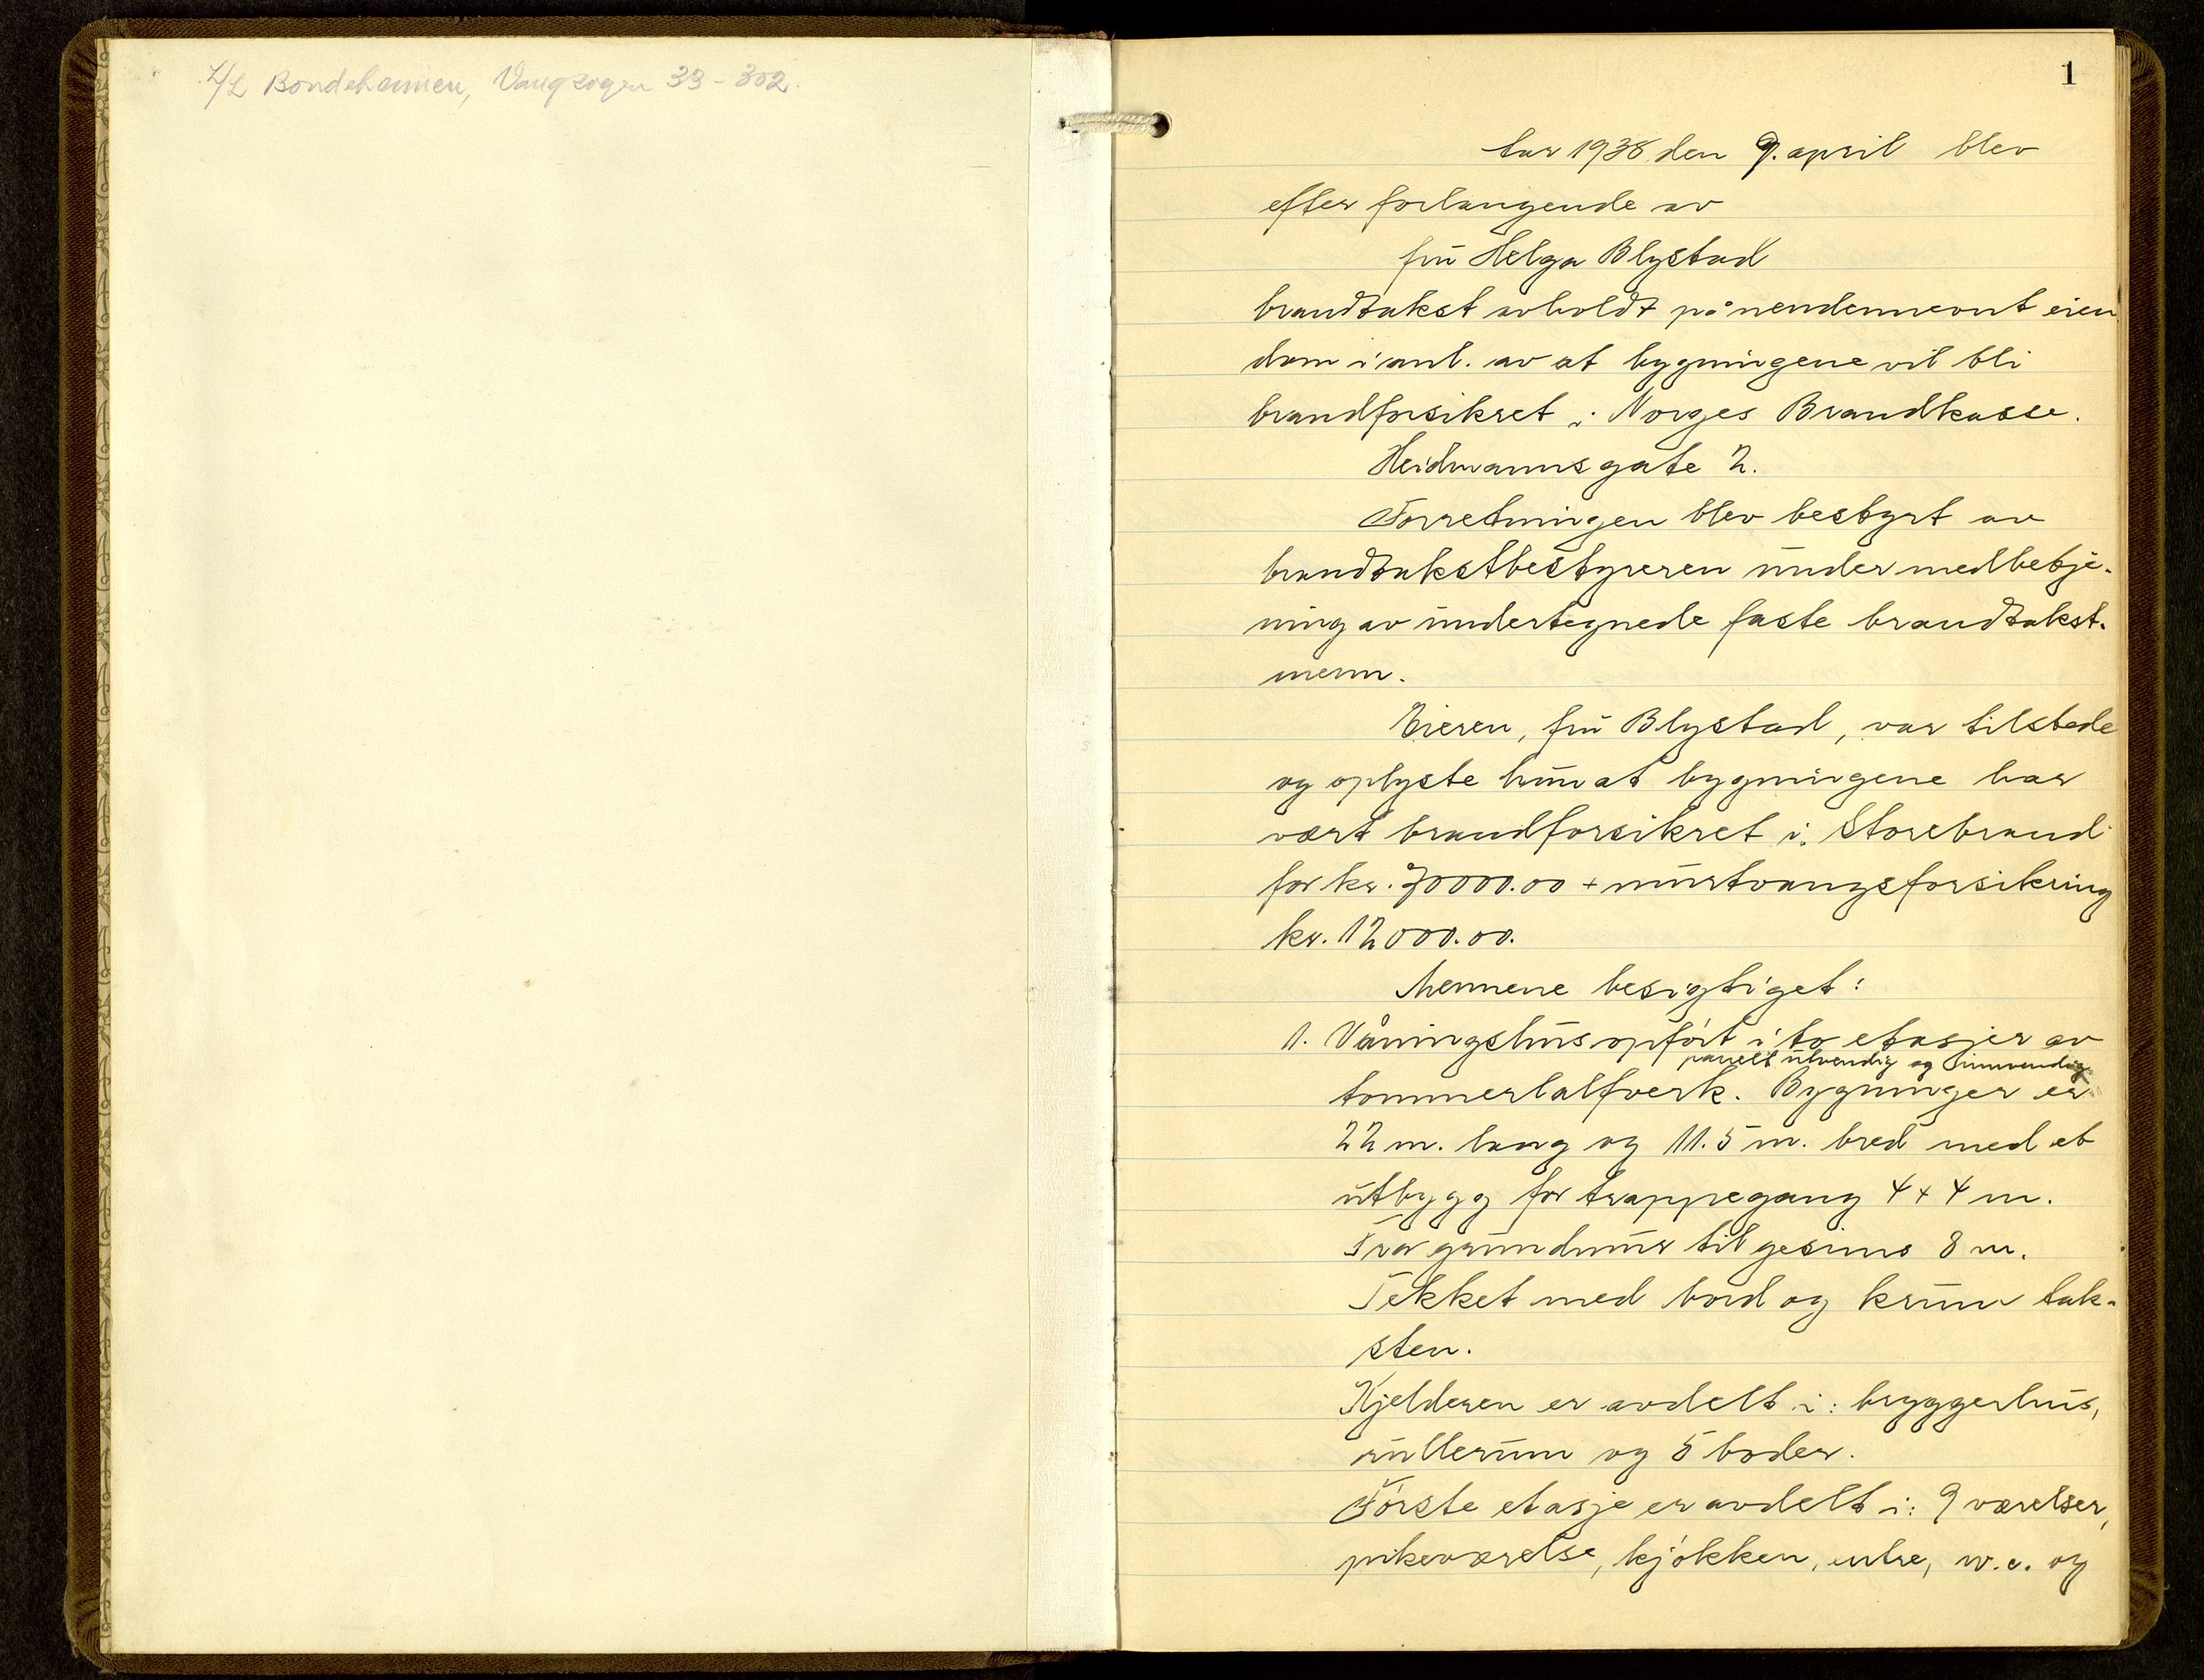 L/L Bondeheimen, Vangsogen 33-302.
1
Aar 1938 den 9. april blev
efter forlangende av
frū Helga Blystad
brandtakst avholdt på nendennevnt eien
dom i anl. av at bygningene vil bli
brandforsikret i Norges Brandkasse.
Heidmannsgate 2.
Forretningen blev bestyrt av
brandtakstbestyreren ūnder medbetje-
ning av ūndertegnede faste brandtakst-
menn.
Eieren, frū Blystad, var tilstede
og oplyste hūn at bygningene har
vært brandforsikret i Storebrand
for kr. 70000.00 + mūrtvangsforsikring
kr. 12000.00.
Mennene besigtiget:
1. Våningshūs opført i to etasjer av
panelt ūtvendig og innvendig
tømmerhalfverk. Bygningen er
22 m. lang og 11.5 m. bred med et
ūtbygg for trappegang 4 x 4 m.
Fra grūndmūr til gesims 8 m.
Tekket med bord og krūm tak-
sten.
Kjelderen er avdelt i: bryggerhūs,
rūllerūm og 5 boder.
Første etasje er avdelt i: 9 værelser,
pikeværelse, kjøkken, entre, w.c. og